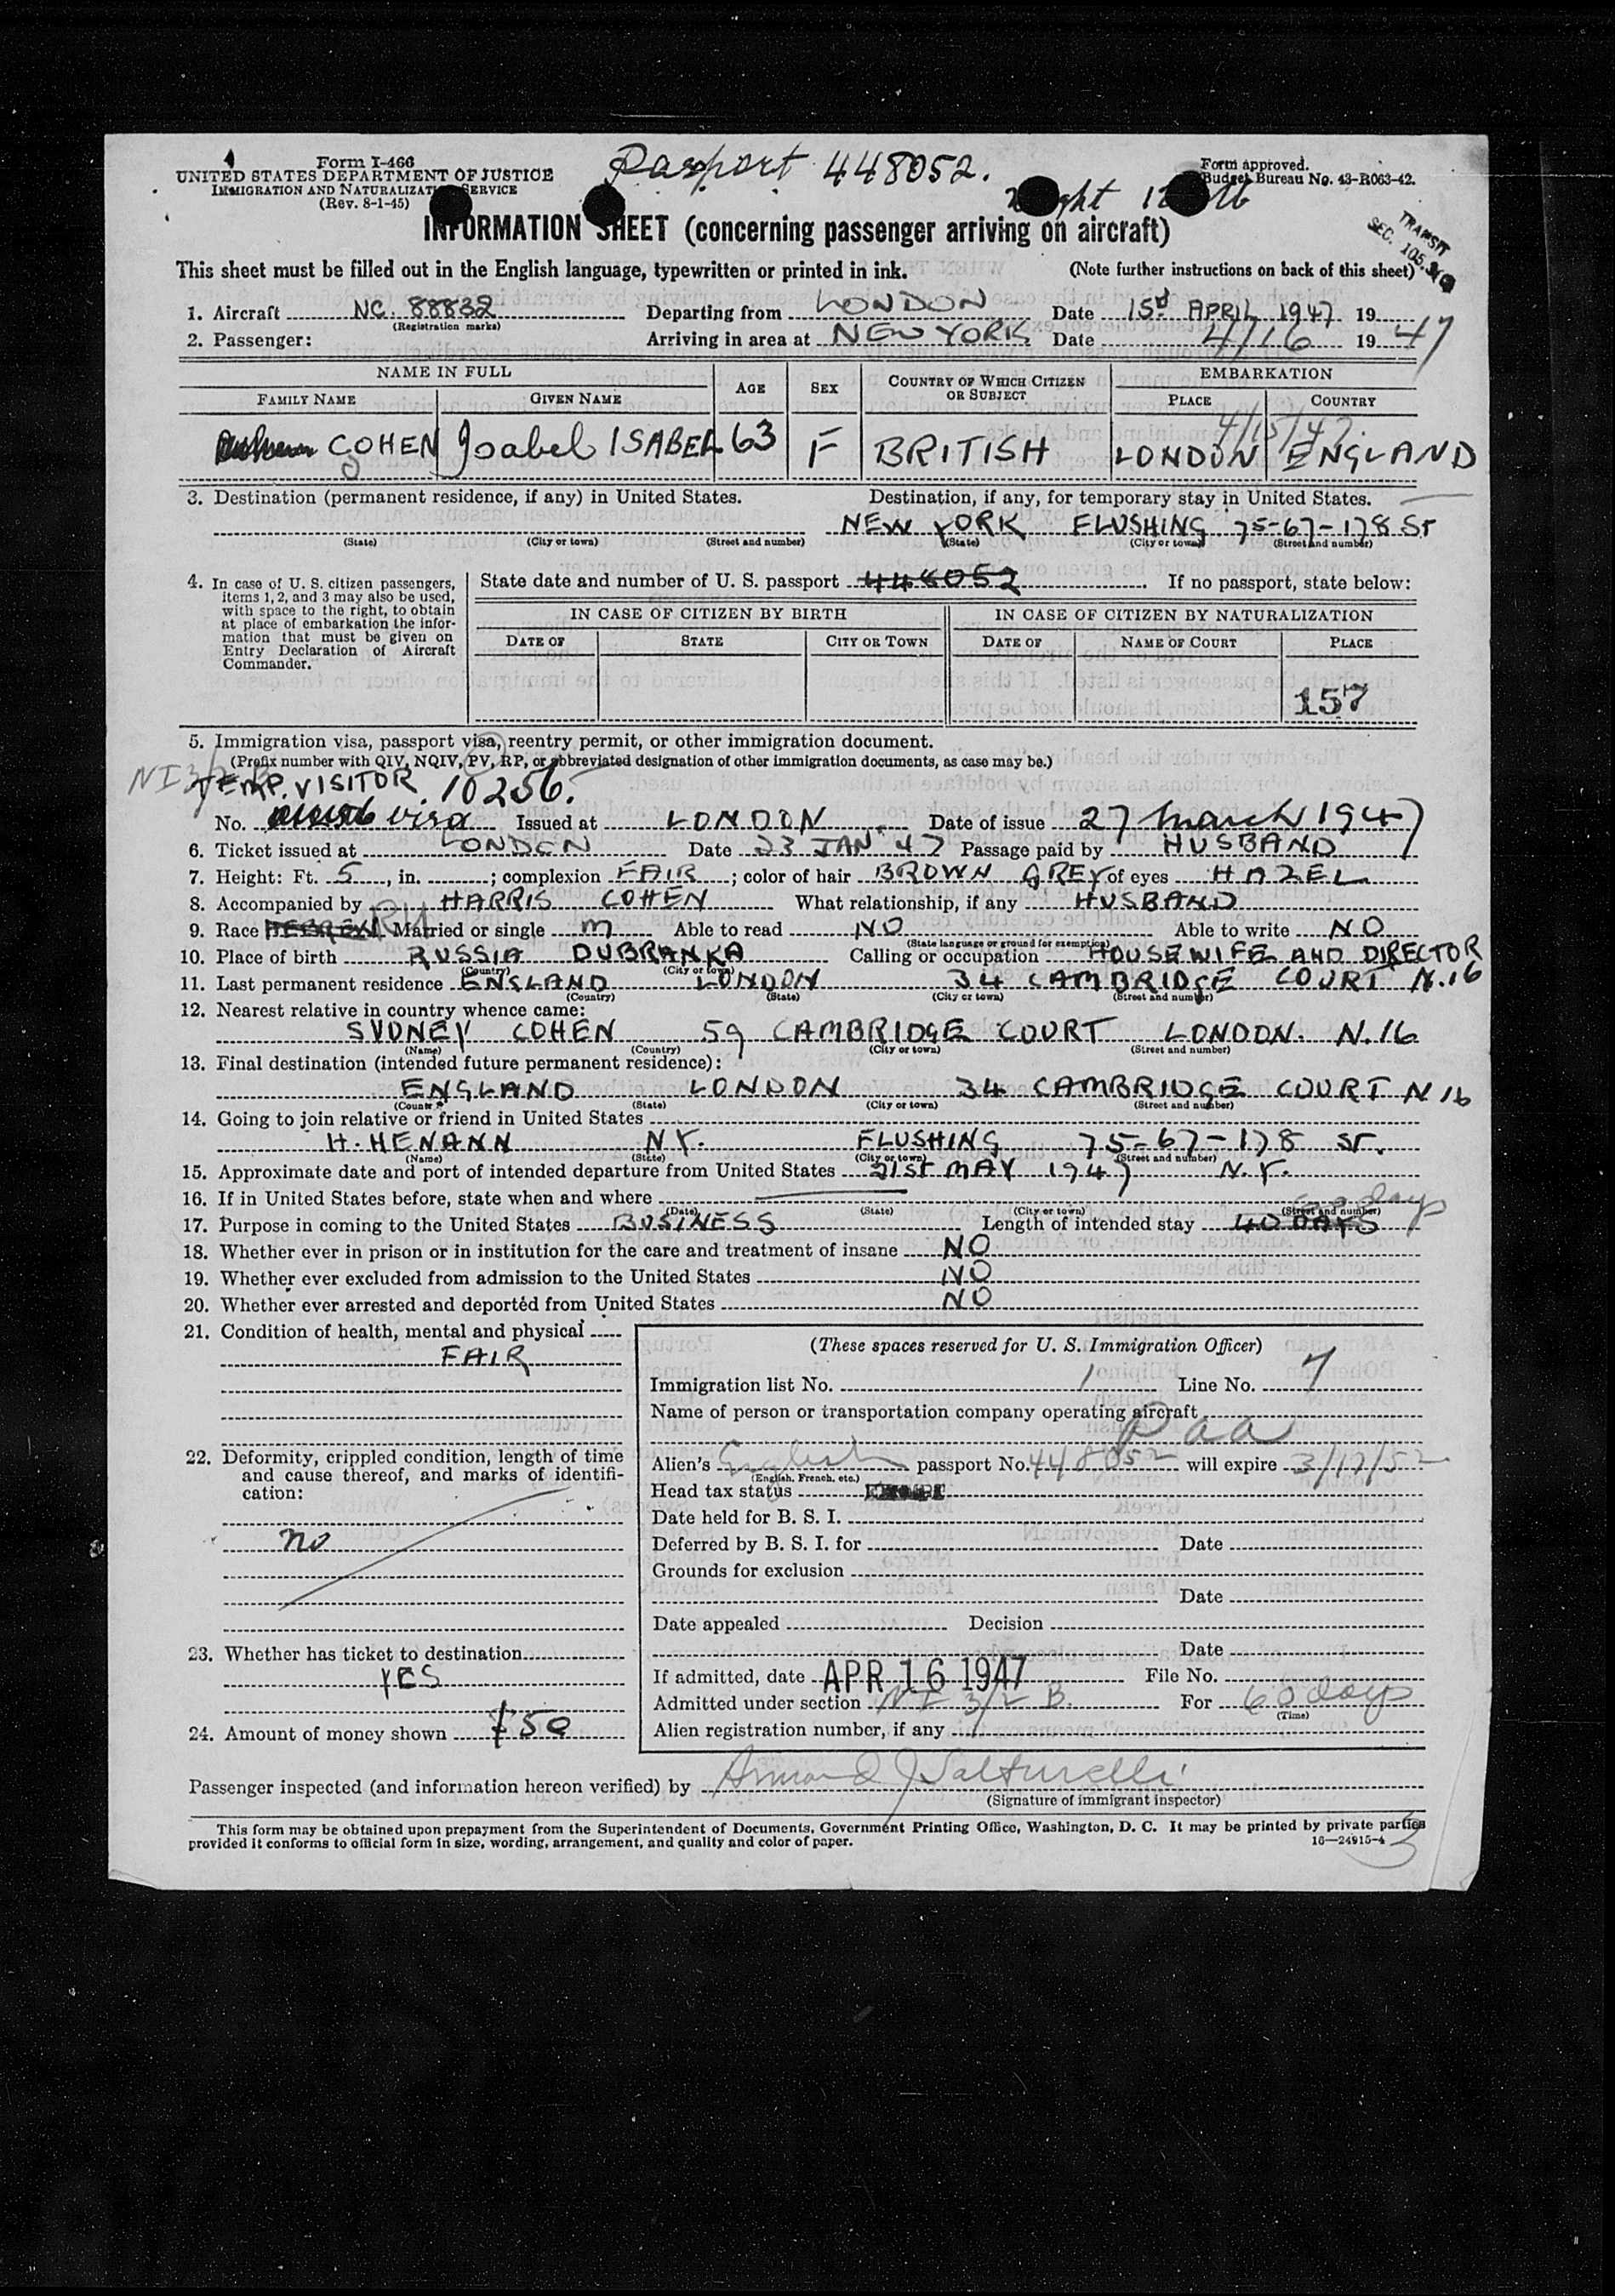 Form I-466
UNITED STATES DEPARTMENT OF JUSTICE
IMMIGRATION AND NATURALIZATION SERVICE
(Rev. 8-1-45)
Passport 448052.
Form approved.
Budget Bureau No. 43-R063-42.
INFORMATION SHEET (concerning passenger arriving on aircraft)
TRANSIT
SEC. 105.
This sheet must be filled out in the English language, typewritten or printed in ink. (Note further instructions on back of this sheet)
1. Aircraft NC. 88832 Departing from LONDON Date 15 APRIL 1947 19
(Registration marks)
2. Passenger: Arriving in area at NEW YORK Date 4/16 19 47
NAME IN FULL AGE SEX COUNTRY OF WHICH CITIZEN OR SUBJECT EMBARKATION
FAMILY NAME GIVEN NAME PLACE COUNTRY
4/15/47
COHEN Isabel ISABEL 63 F BRITISH LONDON ENGLAND
3. Destination (permanent residence, if any) in United States. Destination, if any, for temporary stay in United States.
NEW YORK FLUSHING 75-67-178 ST
(State) (City or town) (Street and number) (State) (City or town) (Street and number)
4. In case of U. S. citizen passengers, items 1, 2, and 3 may also be used, with space to the right, to obtain at place of embarkation the information that must be given on Entry Declaration of Aircraft Commander.
State date and number of U. S. passport 448052 If no passport, state below:
IN CASE OF CITIZEN BY BIRTH IN CASE OF CITIZEN BY NATURALIZATION
DATE OF STATE CITY OR TOWN DATE OF NAME OF COURT PLACE
157
5. Immigration visa, passport visa, reentry permit, or other immigration document.
(Prefix number with QIV, NQIV, PV, RP, or abbreviated designation of other immigration documents, as case may be.)
TEMP. VISITOR 10256.
No. visa Issued at LONDON Date of issue 27 March 1947
6. Ticket issued at LONDON Date 23 JAN 47 Passage paid by HUSBAND
7. Height: Ft. 5, in. ; complexion FAIR ; color of hair BROWN GREY of eyes HAZEL
8. Accompanied by HARRIS COHEN What relationship, if any HUSBAND
9. Race HEBREW Married or single M Able to read NO Able to write NO
(State language or ground for exemption)
10. Place of birth RUSSIA DUBRANKA Calling or occupation HOUSEWIFE AND DIRECTOR
(Country) (City or town)
11. Last permanent residence ENGLAND LONDON 34 CAMBRIDGE COURT N.16
(Country) (State) (City or town) (Street and number)
12. Nearest relative in country whence came:
SYDNEY COHEN 59 CAMBRIDGE COURT LONDON. N.16
(Name) (Country) (City or town) (Street and number)
13. Final destination (intended future permanent residence):
ENGLAND LONDON 34 CAMBRIDGE COURT N 16
(Country) (State) (City or town) (Street and number)
14. Going to join relative or friend in United States
H. HENANN N.Y. FLUSHING 75-67-178 ST.
(Name) (State) (City or town) (Street and number)
15. Approximate date and port of intended departure from United States 21ST MAY 1947 N.Y.
16. If in United States before, state when and where
(Date) (State) (City or town) (Street and number)
17. Purpose in coming to the United States BUSINESS Length of intended stay 40 DAYS days
18. Whether ever in prison or in institution for the care and treatment of insane NO
19. Whether ever excluded from admission to the United States NO
20. Whether ever arrested and deported from United States NO
21. Condition of health, mental and physical
FAIR
22. Deformity, crippled condition, length of time and cause thereof, and marks of identification:
no
23. Whether has ticket to destination
YES
24. Amount of money shown £50
(These spaces reserved for U. S. Immigration Officer)
Immigration list No. 1 Line No. 7
Name of person or transportation company operating aircraft
Paa
Alien's English passport No. 448052 will expire 3/17/52
(English, French, etc.)
Head tax status
Date held for B. S. I.
Deferred by B. S. I. for Date
Grounds for exclusion
Date
Date appealed Decision
Date
If admitted, date APR 16 1947 File No.
Admitted under section NI 3/2 B. For 60 days
(Time)
Alien registration number, if any
Passenger inspected (and information hereon verified) by
(Signature of immigrant inspector)
This form may be obtained upon prepayment from the Superintendent of Documents, Government Printing Office, Washington, D. C. It may be printed by private parties
provided it conforms to official form in size, wording, arrangement, and quality and color of paper. 16—24915-4
3